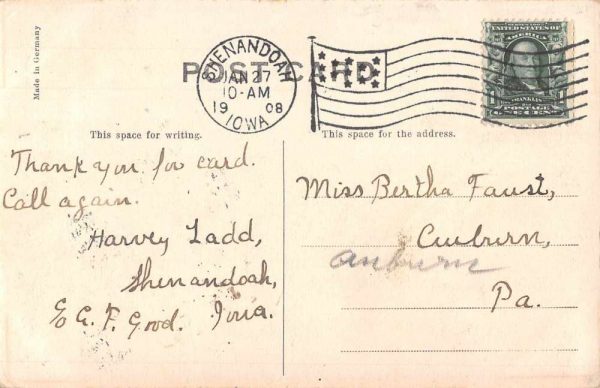 Made in Germany
POST CARD
SHENANDOAH
JAN 27
10-AM
1908
IOWA
UNITED STATES OF
AMERICA
FRANKLIN
POSTAGE
ONE CENT
This space for writing.
This space for the address.
Thank you for card.
Call again.
Harvey Ladd,
Shenandoah,
Iowa.
E.C.F. Good.
Miss Bertha Faust,
Auburn,
Auburn
Pa.